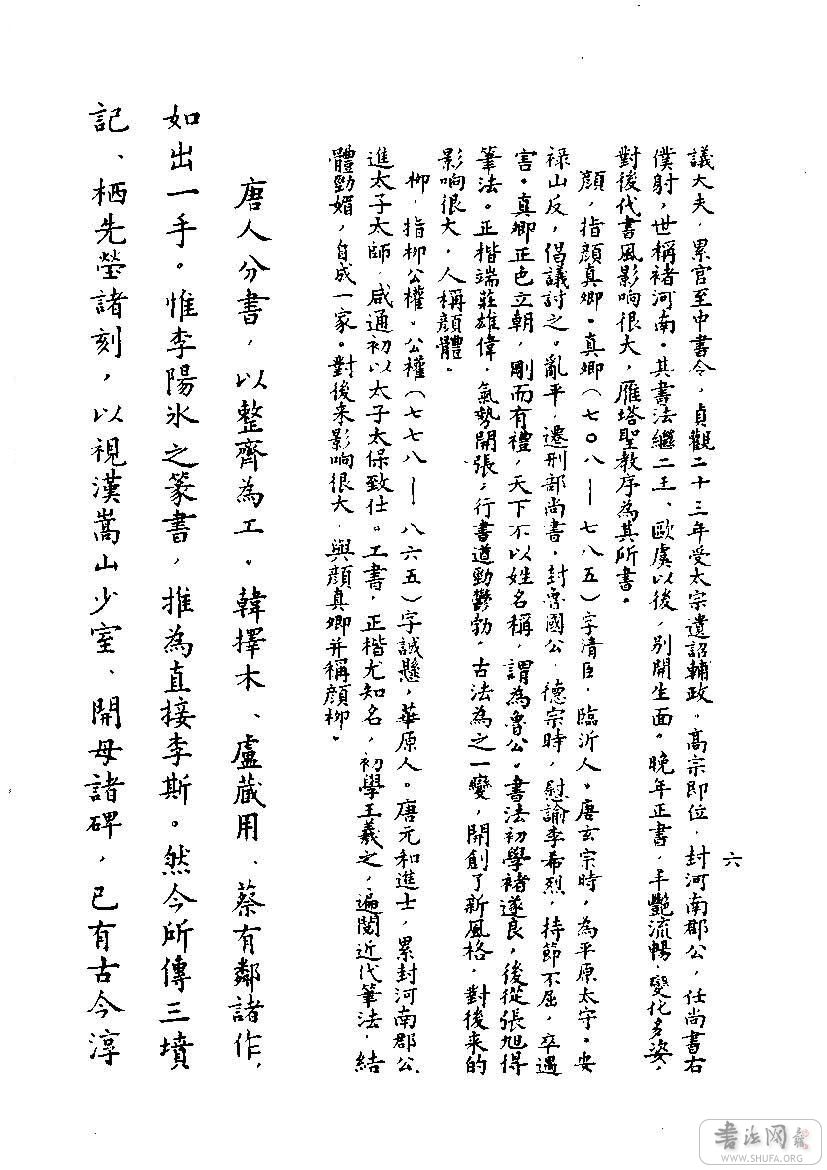 六
議大夫，累官至中書令，貞觀二十三年受太宗遺詔輔政。高宗即位，封河南郡公，任尚書右
僕射，世稱褚河南。其書法繼二王、歐虞以後，別開生面。晚年正書，丰艷流暢，變化多姿，
對後代書風影响很大，雁塔聖教序為其所書。
顏，指顏真卿。真卿（七〇八—七八五）字清臣，臨沂人。唐玄宗時，為平原太守。安
祿山反，倡議討之。亂平，遷刑部尚書，封魯國公，德宗時，慰諭李希烈，持節不屈，卒遇
害。真卿正色立朝，剛而有禮，天下不以姓名稱，謂為魯公。書法初學褚遂良，後從張旭得
筆法。正楷端莊雄偉，氣勢開張；行書遒勁鬱勃，古法為之一變，開創了新風格，對後來的
影响很大，人稱顏體。
柳，指柳公權。公權（七七八—八六五）字誠懸，華原人。唐元和進士，累封河南郡公，
進太子太師，咸通初以太子太保致仕。工書，正楷尤知名，初學王羲之，遍閱近代筆法，結
體勁媚，自成一家。對後来影响很大，與顏真卿并稱顏柳。
唐人分書，以整齊為工。韓擇木、盧藏用、蔡有鄰諸作，
如出一手。惟李陽氷之篆書，推為直接李斯。然今所傳三墳
記、栖先塋諸刻，以視漢嵩山少室、開母諸碑，已有古今淳
書法网
WWW.SHUFA.ORG